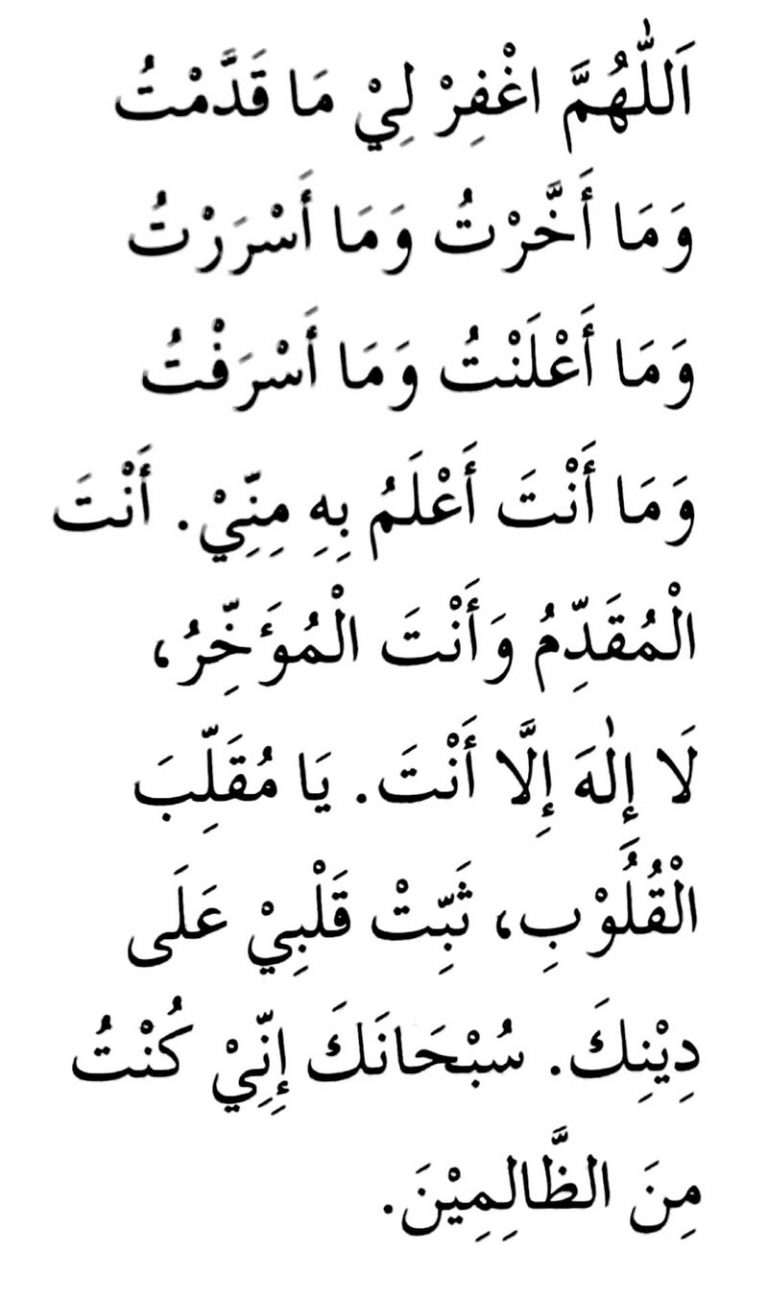 اَللّٰهُمَّ اغْفِرْ لِيْ مَا قَدَّمْتُ
وَمَا أَخَّرْتُ وَمَا أَسْرَرْتُ
وَمَا أَعْلَنْتُ وَمَا أَسْرَفْتُ
وَمَا أَنْتَ أَعْلَمُ بِهِ مِنِّيْ. أَنْتَ
الْمُقَدِّمُ وَأَنْتَ الْمُؤَخِّرُ،
لَا إِلٰهَ إِلَّا أَنْتَ. يَا مُقَلِّبَ
الْقُلُوْبِ، ثَبِّتْ قَلْبِيْ عَلَى
دِيْنِكَ. سُبْحَانَكَ إِنِّيْ كُنْتُ
مِنَ الظَّالِمِيْنَ.